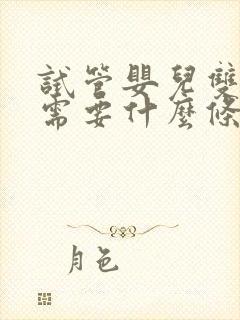 試管嬰兒雙
需要什麼條
月色